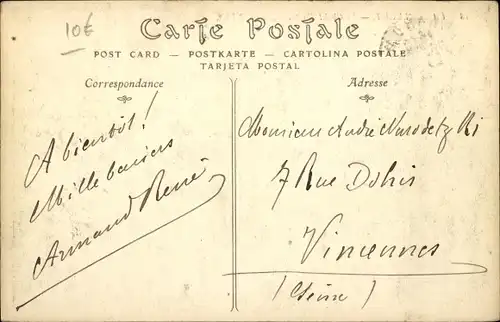 10€
Carte Postale
POST CARD — POSTKARTE — CARTOLINA POSTALE
TARJETA POSTAL
Correspondance
A bientôt!
Mille baisers
Armand René
Adresse
Monsieur André
7 Rue
Vincennes
(Seine)